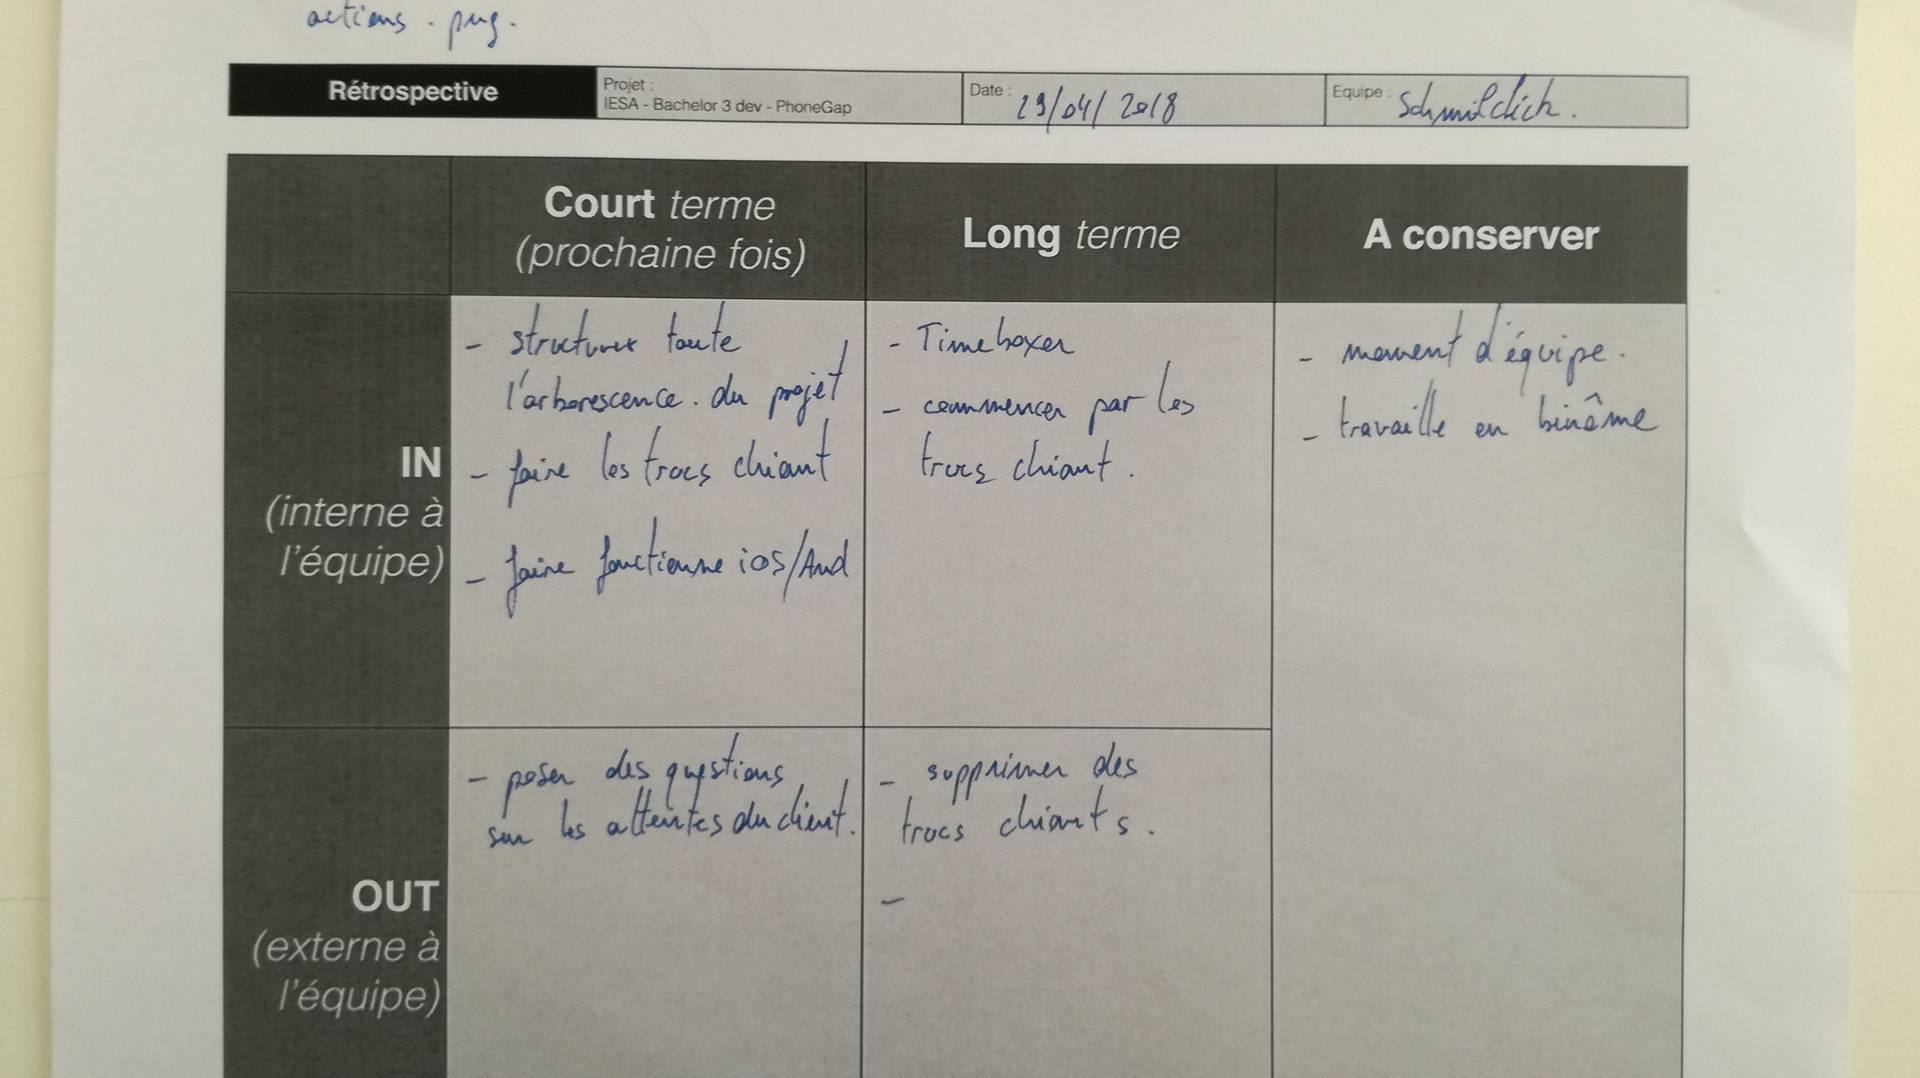 actions.png.
Rétrospective
Projet :
IESA - Bachelor 3 dev - PhoneGap
Date : 23/04/2018
Equipe : Schmilclick.
Court terme
(prochaine fois)
Long terme
A conserver
IN
(interne à
l'équipe)
- structurer toute
l'arborescence. du projet
- faire les trucs chiant
- faire fonctionne iOS/And
- Timeboxer
- commencer par les
trucs chiant.
- moment d'équipe.
- travaille en binôme
OUT
(externe à
l'équipe)
- poser des questions
sur les attentes du client.
- supprimer des
trucs chiants.
-